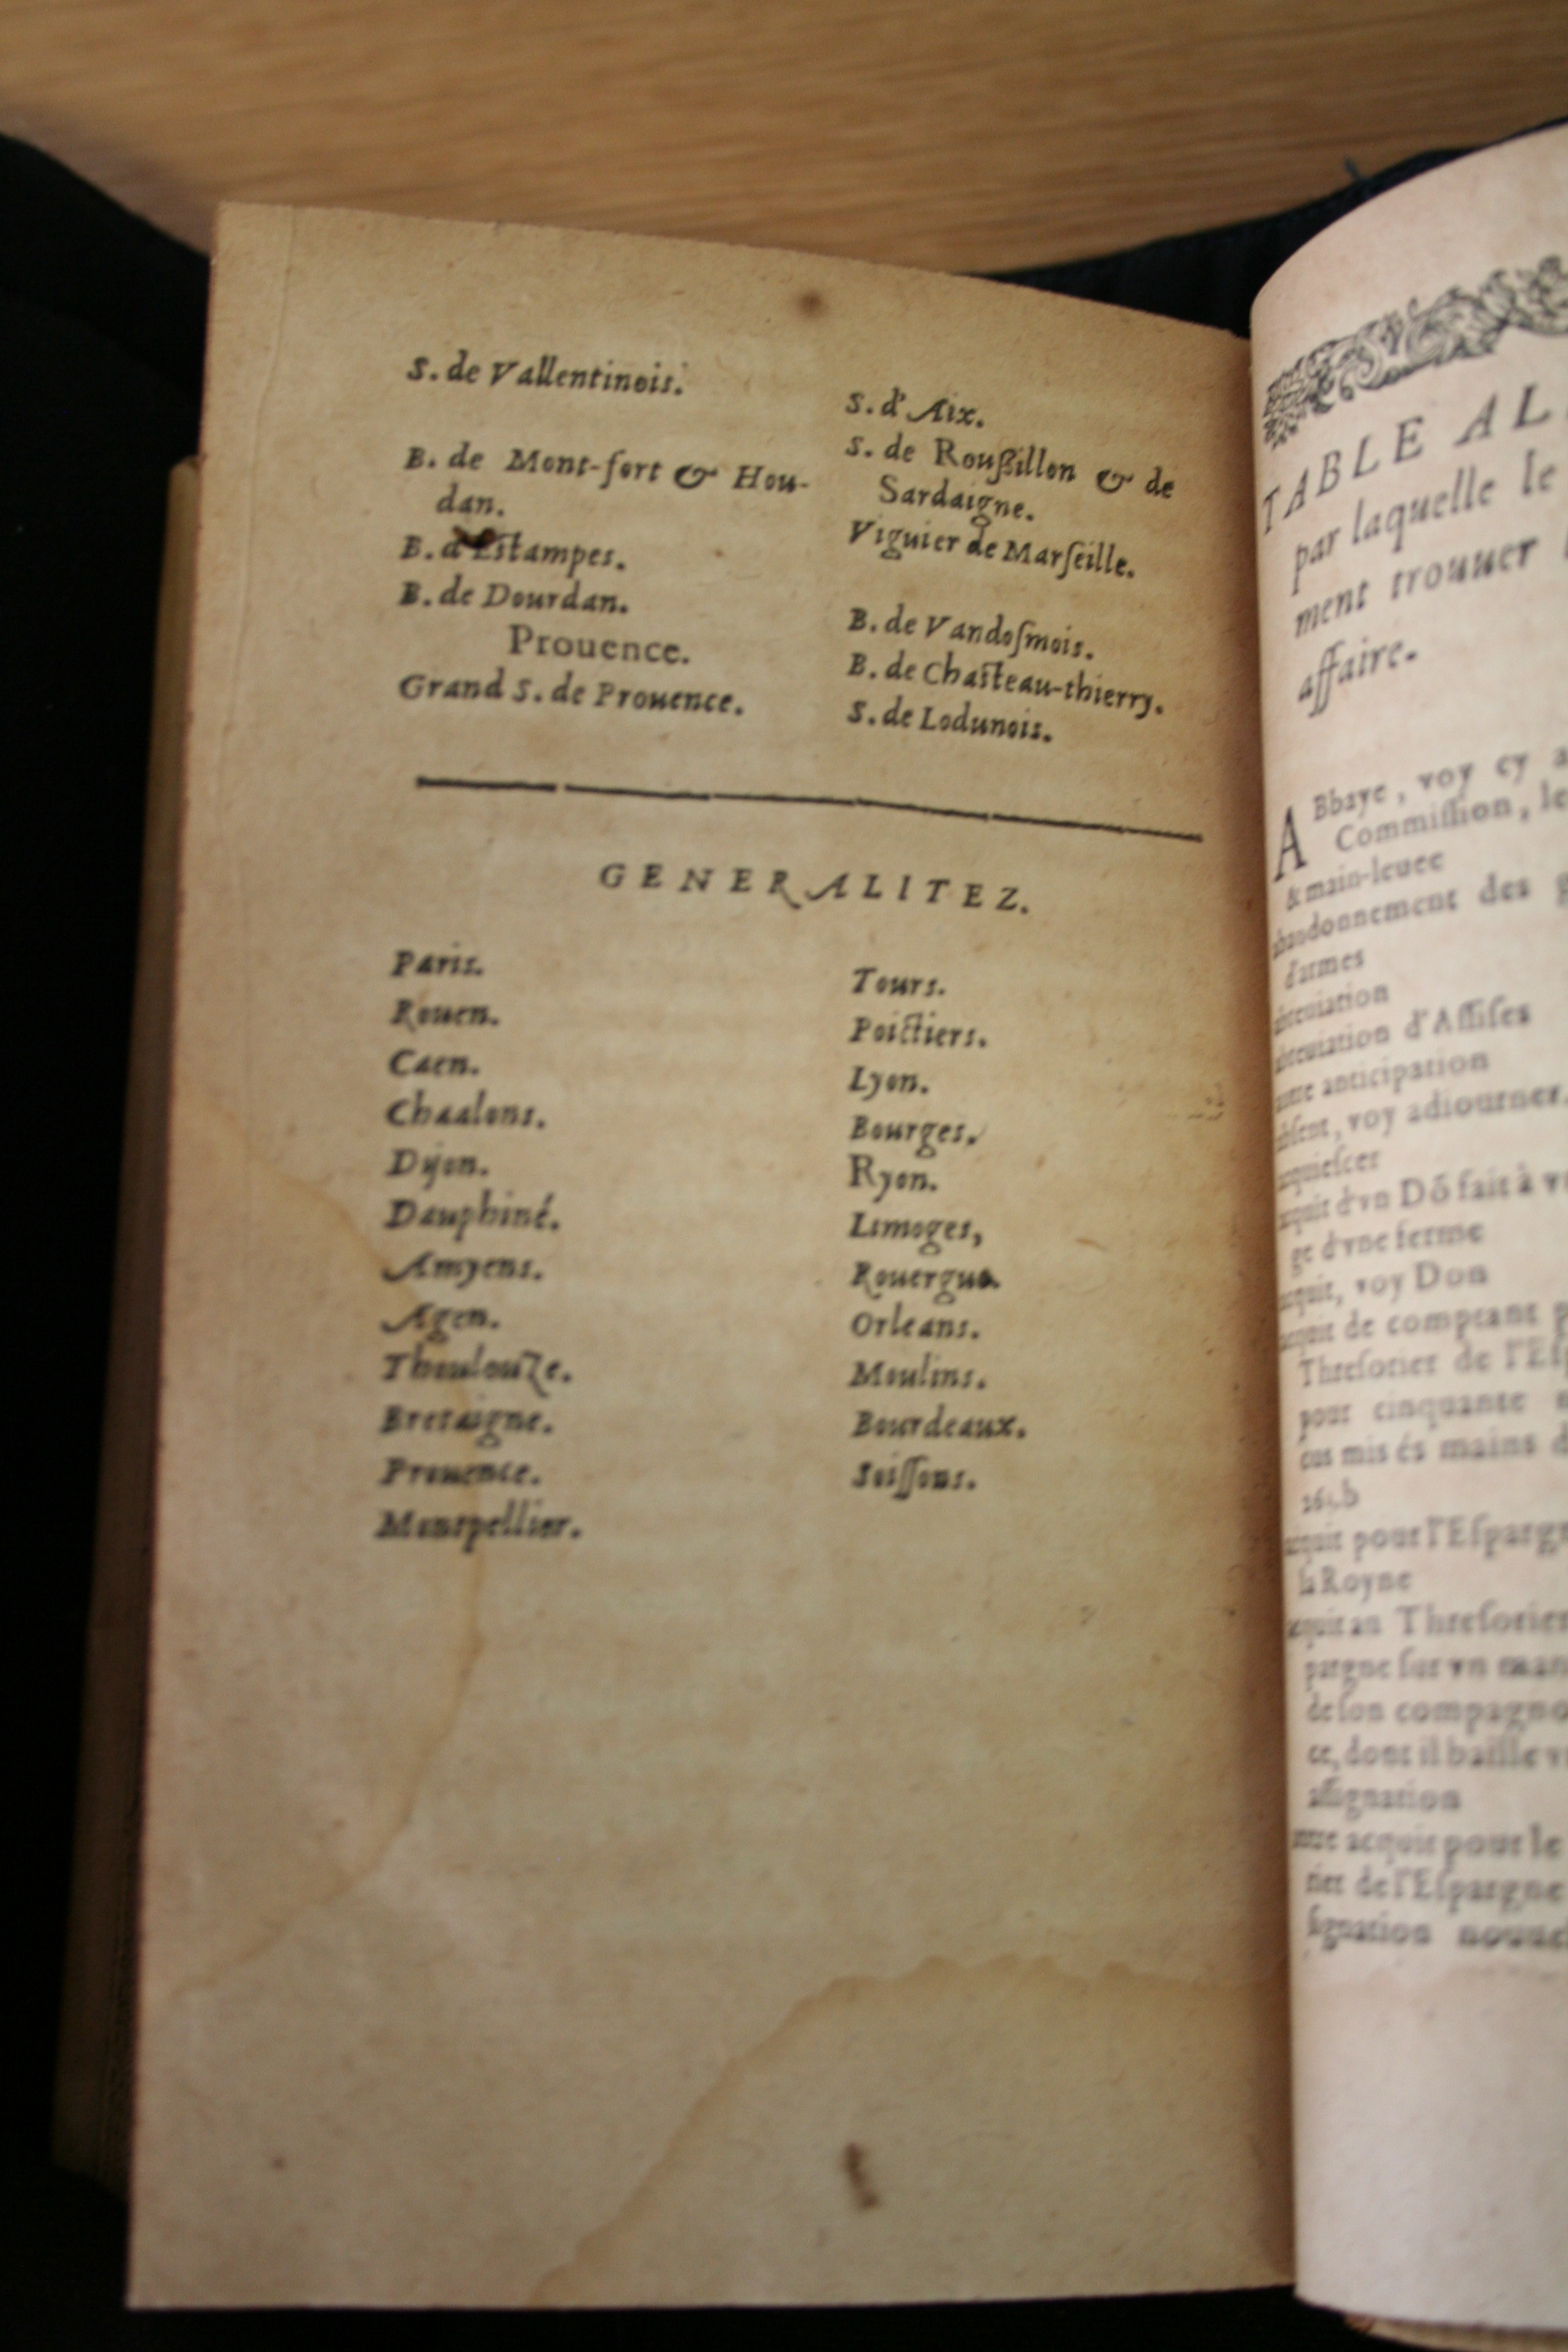 S. de Vallentinois.
B. de Mont-fort & Hou-
dan.
B. d'Estampes.
B. de Dourdan.
Prouence.
Grand S. de Prouence.
S. d'Aix.
S. de Roußillon & de
Sardaigne.
Viguier de Marſeille.
B. de Vandoſmois.
B. de Chasteau-thierry.
S. de Lodunois.
GENERALITEZ.
Paris.
Rouen.
Caen.
Chaalons.
Dijon.
Dauphiné.
Amyens.
Agen.
Thoulouze.
Bretaigne.
Prouence.
Montpellier.
Tours.
Poictiers.
Lyon.
Bourges.
Ryon.
Limoges,
Rouergue.
Orleans.
Moulins.
Bourdeaux.
Soiſſons.
TABLE AL
par laquelle le
ment trouuer
affaire.
ABbaye, voy cy a
Commiſſion, le
& main-leuee
abandonnement des g
d'armes
abreuiation
abreuiation d'Aſſiſes
autre anticipation
abſent, voy adiourner.
acquieſcer
acquit d'vn Dō fait à v
ge d'vne ferme
acquit, voy Don
acquit de comptant p
Threſorier de l'Eſ
pour cinquante
cus mis és mains d
261.b
acquit pour l'Eſpargn
la Royne
acquit au Threſorier
pargne ſur vn man
de ſon compagno
ce, dont il baille v
aſſignation
autre acquit pour le
rier de l'Eſpargne
ſignation nouuel